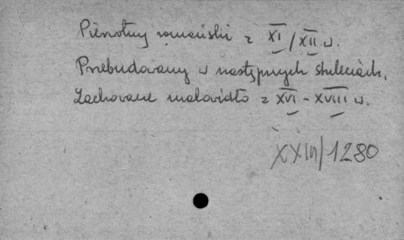 Pierwotny romański z XI/XII w.
Przebudowany w następnych stuleciach.
Zachowane malowidło z XVI - XVIII w.
XXIII/1280